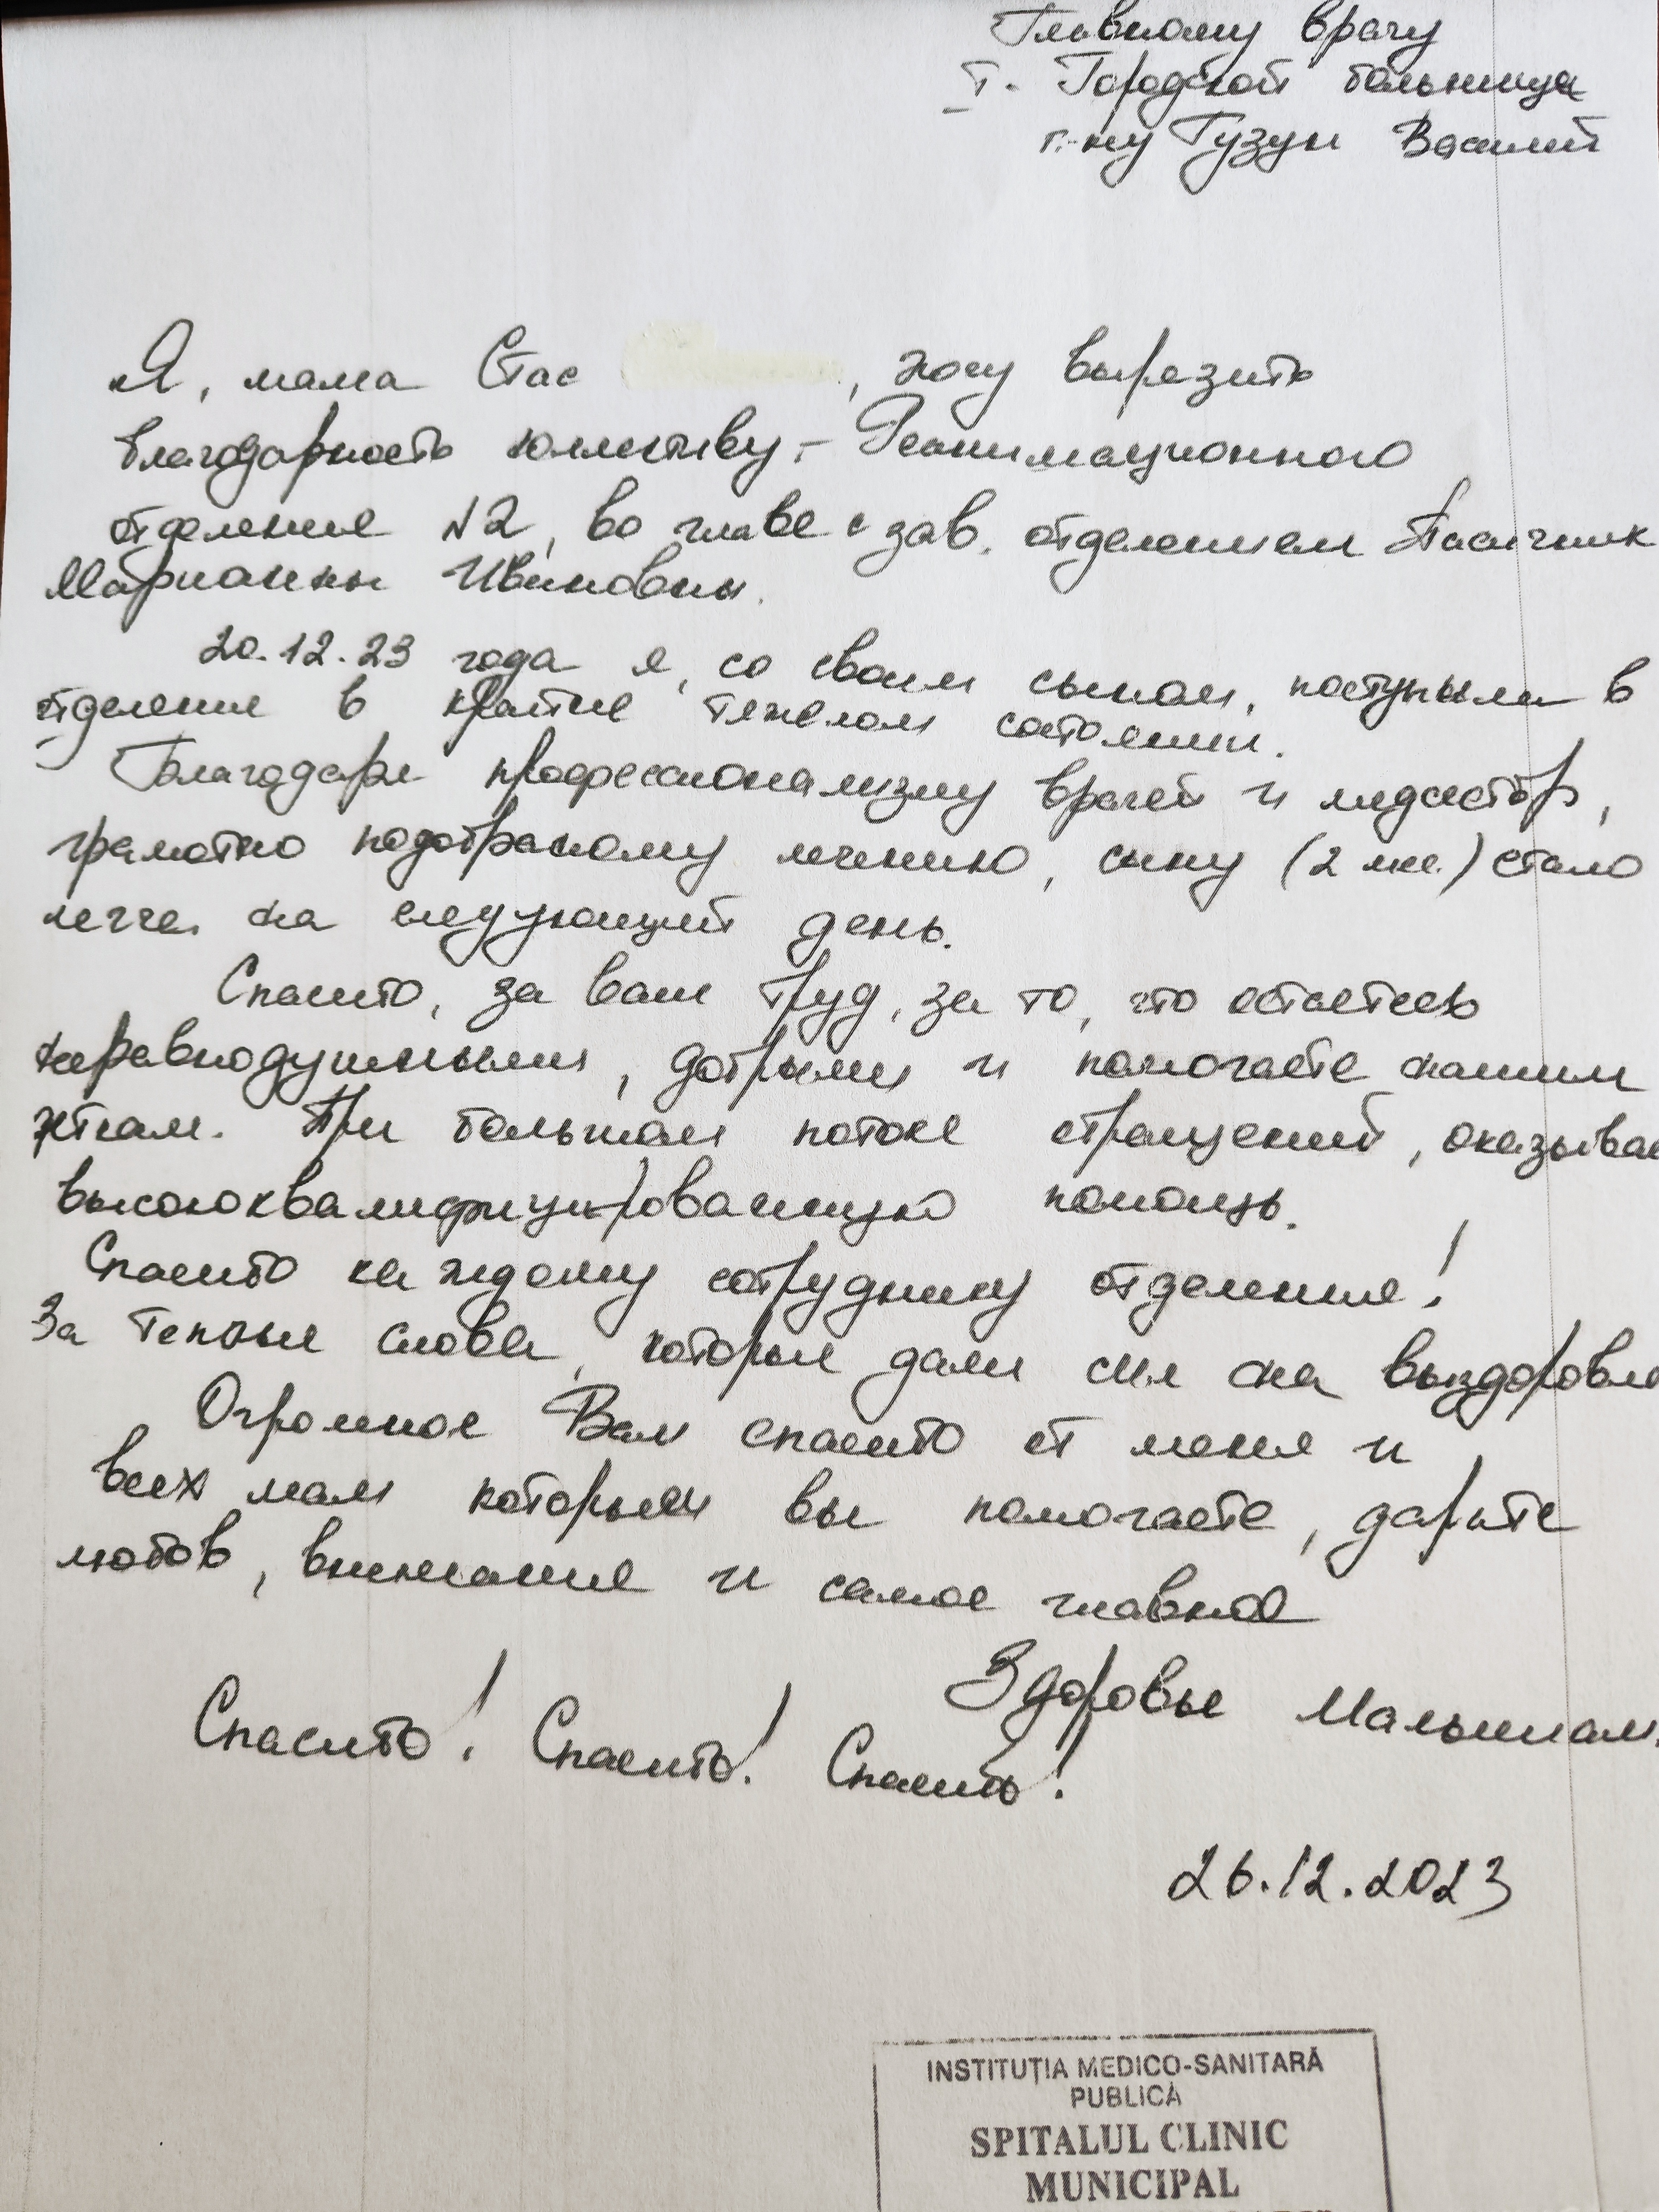 Главному врачу
I. Городской больница
г-ну Гузун Василий
Я, мама Стас , хочу выразить
благодарность коллективу, - Реанимационного
отделение N2, во главе с зав. отделением Пасичник
Марианны Ивановны.
20.12.23 года я, со своим сыном, поступили в
отделение в крайне тяжелом состоянии.
Благодаря профессионализму врачей и медсестёр,
грамотно подобраному лечению, сыну (2 мес.) стало
легче на следующий день.
Спасибо, за ваш труд, за то, что остаетесь
неравнодушными, добрыми и помогаете нашим
деткам. При большом потоке обращений, оказывае
высококвалифицированную помощь.
Спасибо каждому сотруднику отделение!
За теплые слова, которые дали сил на выздоровле
Огромное Вам спасибо от меня и
всех мам которым вы помогаете, дарите
любовь, внимание и самое главное
Здоровье Малышам.
Спасибо! Спасибо! Спасибо!
26.12.2023
INSTITUȚIA MEDICO-SANITARĂ
PUBLICĂ
SPITALUL CLINIC
MUNICIPAL